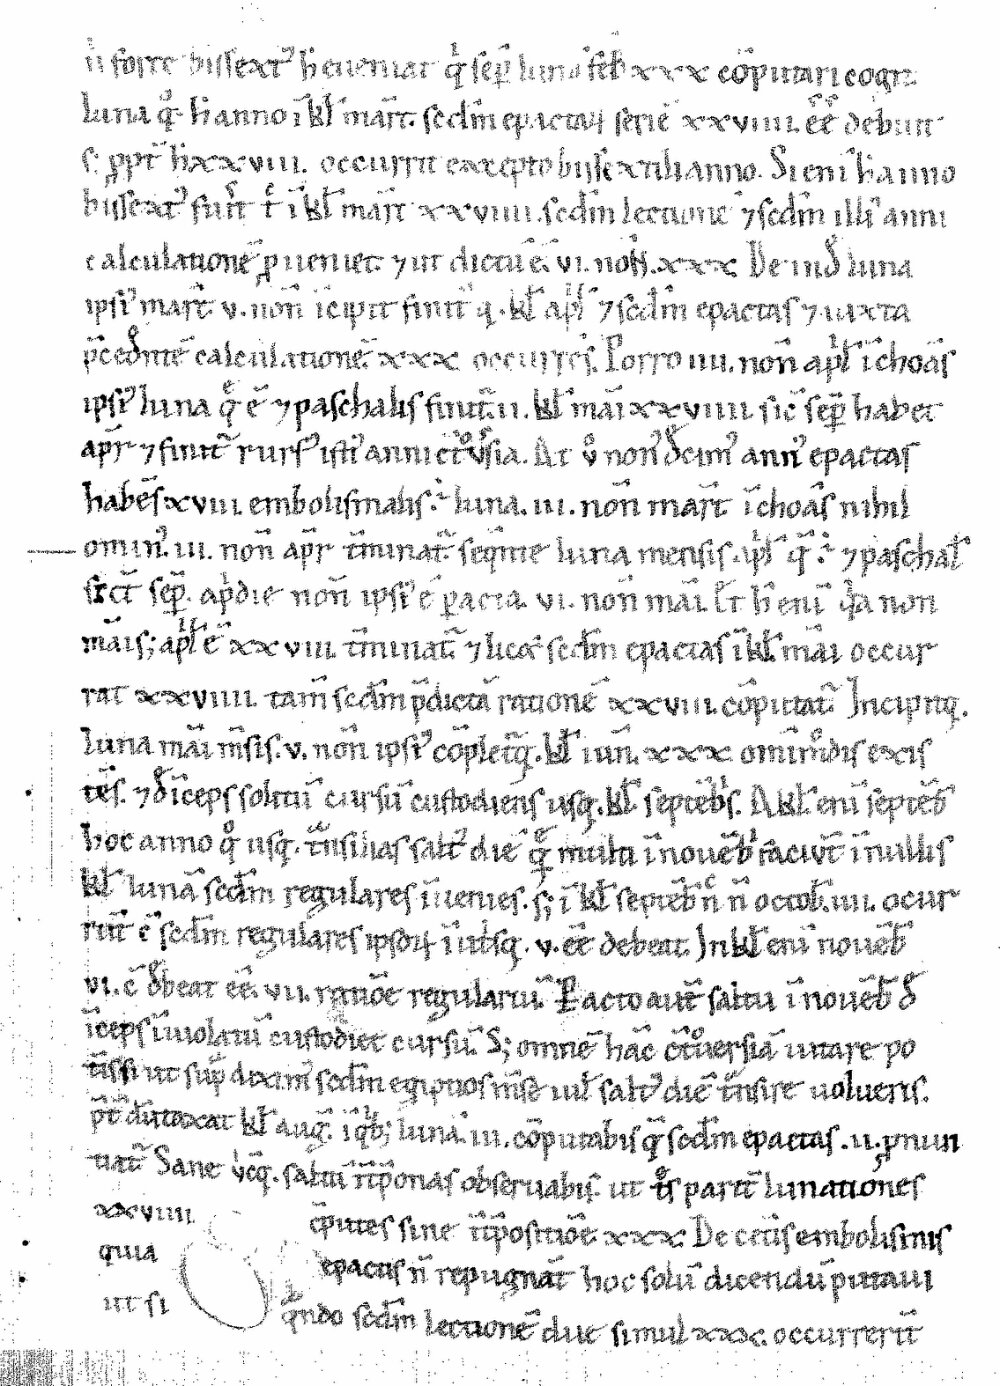 n̄ forte bissextꝰ h̄ eueniat q̇ sep̄ luna feb̄ xxx cōputari cogit
luna qͦ h̄ anno ī kl̄ mar̄t. scdm̄ epactaꝝ seriē xxviiii. ēē debuit
s; ꝓpt̄ h̄ xxviii. occurrit excepto bissextili anno. Si enī h̄ anno
bissextꝰ fuīt t͛ ī kl̄ mar̄t xxviiii. scdm̄ lectionē ⁊ scdm̄ illiꝰ anni
calculationē ꝓueniet ⁊ ut dictū ē. vi. non̄. xxx. De ind̄ luna
ipsiꝰ mar̄t. v. non̄ īcipit finit q. kl̄ apl̄ ⁊ scdm̄ epactas ⁊ iuxta
p̄cedntē calculationē xxx occurres. Porro iiii. non̄ apl̄ īchoās
ipsiꝰ luna q̄ ē ⁊ paschalis finit̄ ii. kl̄ mai xxviiii sic̄ sep̄ habet
apr̄ ⁊ finit̄ rursꝰ isti anni ct̄ͦv̄sia. At v̊ nonꝰdecimꝰ annꝰ epactas
habēs xviii. embolismalis luna. iii. non̄ mar̄t īchoās nihil
ominꝰ. iii. non̄ apr̄ t̄minat̄ seqn̄te luna mensis apl̄ q̄ ⁊ paschal̄
sep̄. apdie non̄ ipsiꝰ ē pacta. vi. non̄ mai. h̄ enī non
māis; apl̄ ē xxviii t̄minat̄ ⁊ licet scdm̄ epactas ī kl̄ mai occur
rat xxviiii. tam̄ scdm̄ p̄dictā rationē xxviii. cōputat̄ Incipitq.
luna mai m̄sis. v. non̄ ipsiꝰ cōpletq. kl̄ iun̄. xxx omīmodis exis
tēs. ⁊ dīceps solitū cursū custodiens usq. kl̄ septēbs̄. A kl̄ enī septēb̄
hoc anno qͦ usq. t̄nsilias saltꝰ diē q̄ͦ multi ī nouēb̄ faciūt ī nullis
kl̄ lunā scdm̄ regulares īuenies. s; ī kl̄ septēb̄ n̄ n̄ octob̄. iiii. ocur
rūt ē scdm̄ regulares ipsoꝝ v. ēē debeat. In kl̄ enī nouēb̄
vi. ē d̄beat ēē. vii. ratiōe regulariū. Pacto aut̄ saltu ī nouēb̄ d̄
īceps īuiolatū custodiet cursū. S; omnē hāc ct̄ͦuersiā uitare po
tissi ut sup̄ diximꝰ scdm̄ egiptios m̄se iul̄ saltꝰ diē t̄nsire uolueris.
p̄t dūtaxat kl̄ aug̅. ī qb; luna. iii. cōputabis q̄ scdm̄ epactas. ii. ꝓnun
tiat̄ Sane vcq̄. saltū īt̄ponas obseruabis. ut t̄s part̄ lunationes
xxviiii cp̄utes sine īt̄positiōe xxx. De cet̄is embolismis
quia epactis n̄ repugnāt hoc solū dicendū putaui
ut si qn̄do scdm̄ lectionē due simul xxx. occurrerīt